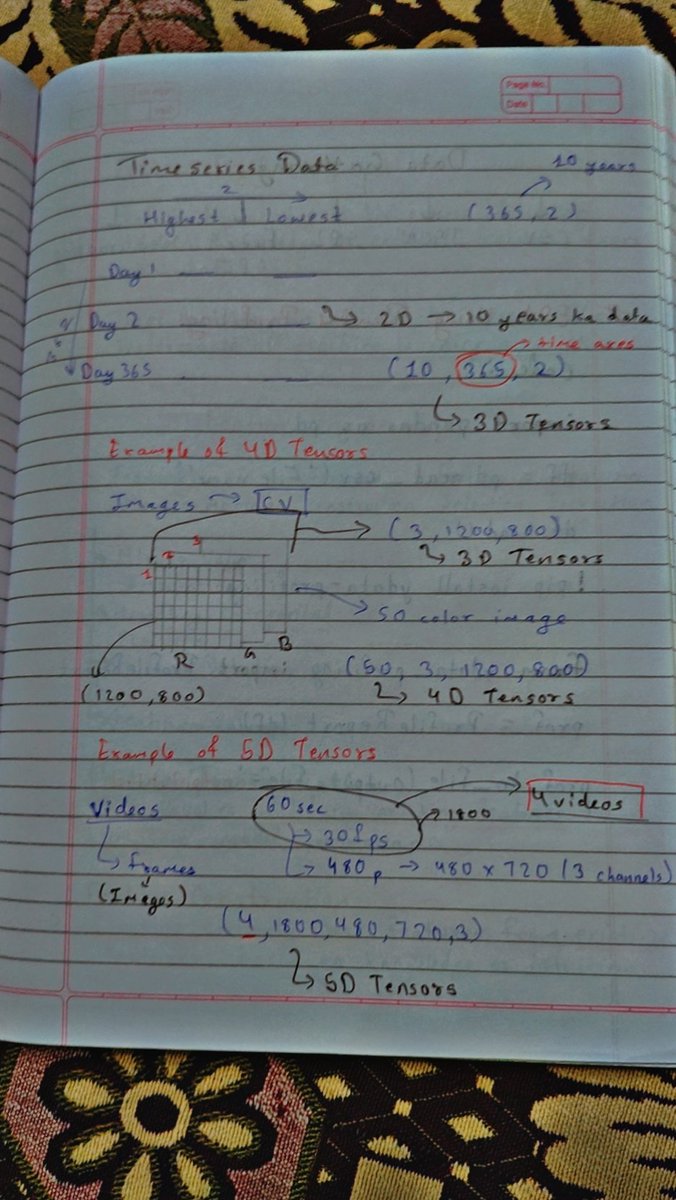 Page No.
Date
Timeseries Data
10 years
2
Highest Lowest
(365, 2)
Day 1
Day 2
2D → 10 years ka data
time axes
Day 365
(10, 365, 2)
3D Tensors
Example of 4D Tensors
Images → CV
(3, 1200, 800)
1 2 3
3D Tensors
50 color image
R G B
(50, 3, 1200, 800)
(1200, 800)
4D Tensors
Example of 5D Tensors
Videos
60 sec
1800
4 videos
30 fps
frames
480p → 480 x 720 (3 channels)
(Images)
(4, 1800, 480, 720, 3)
5D Tensors